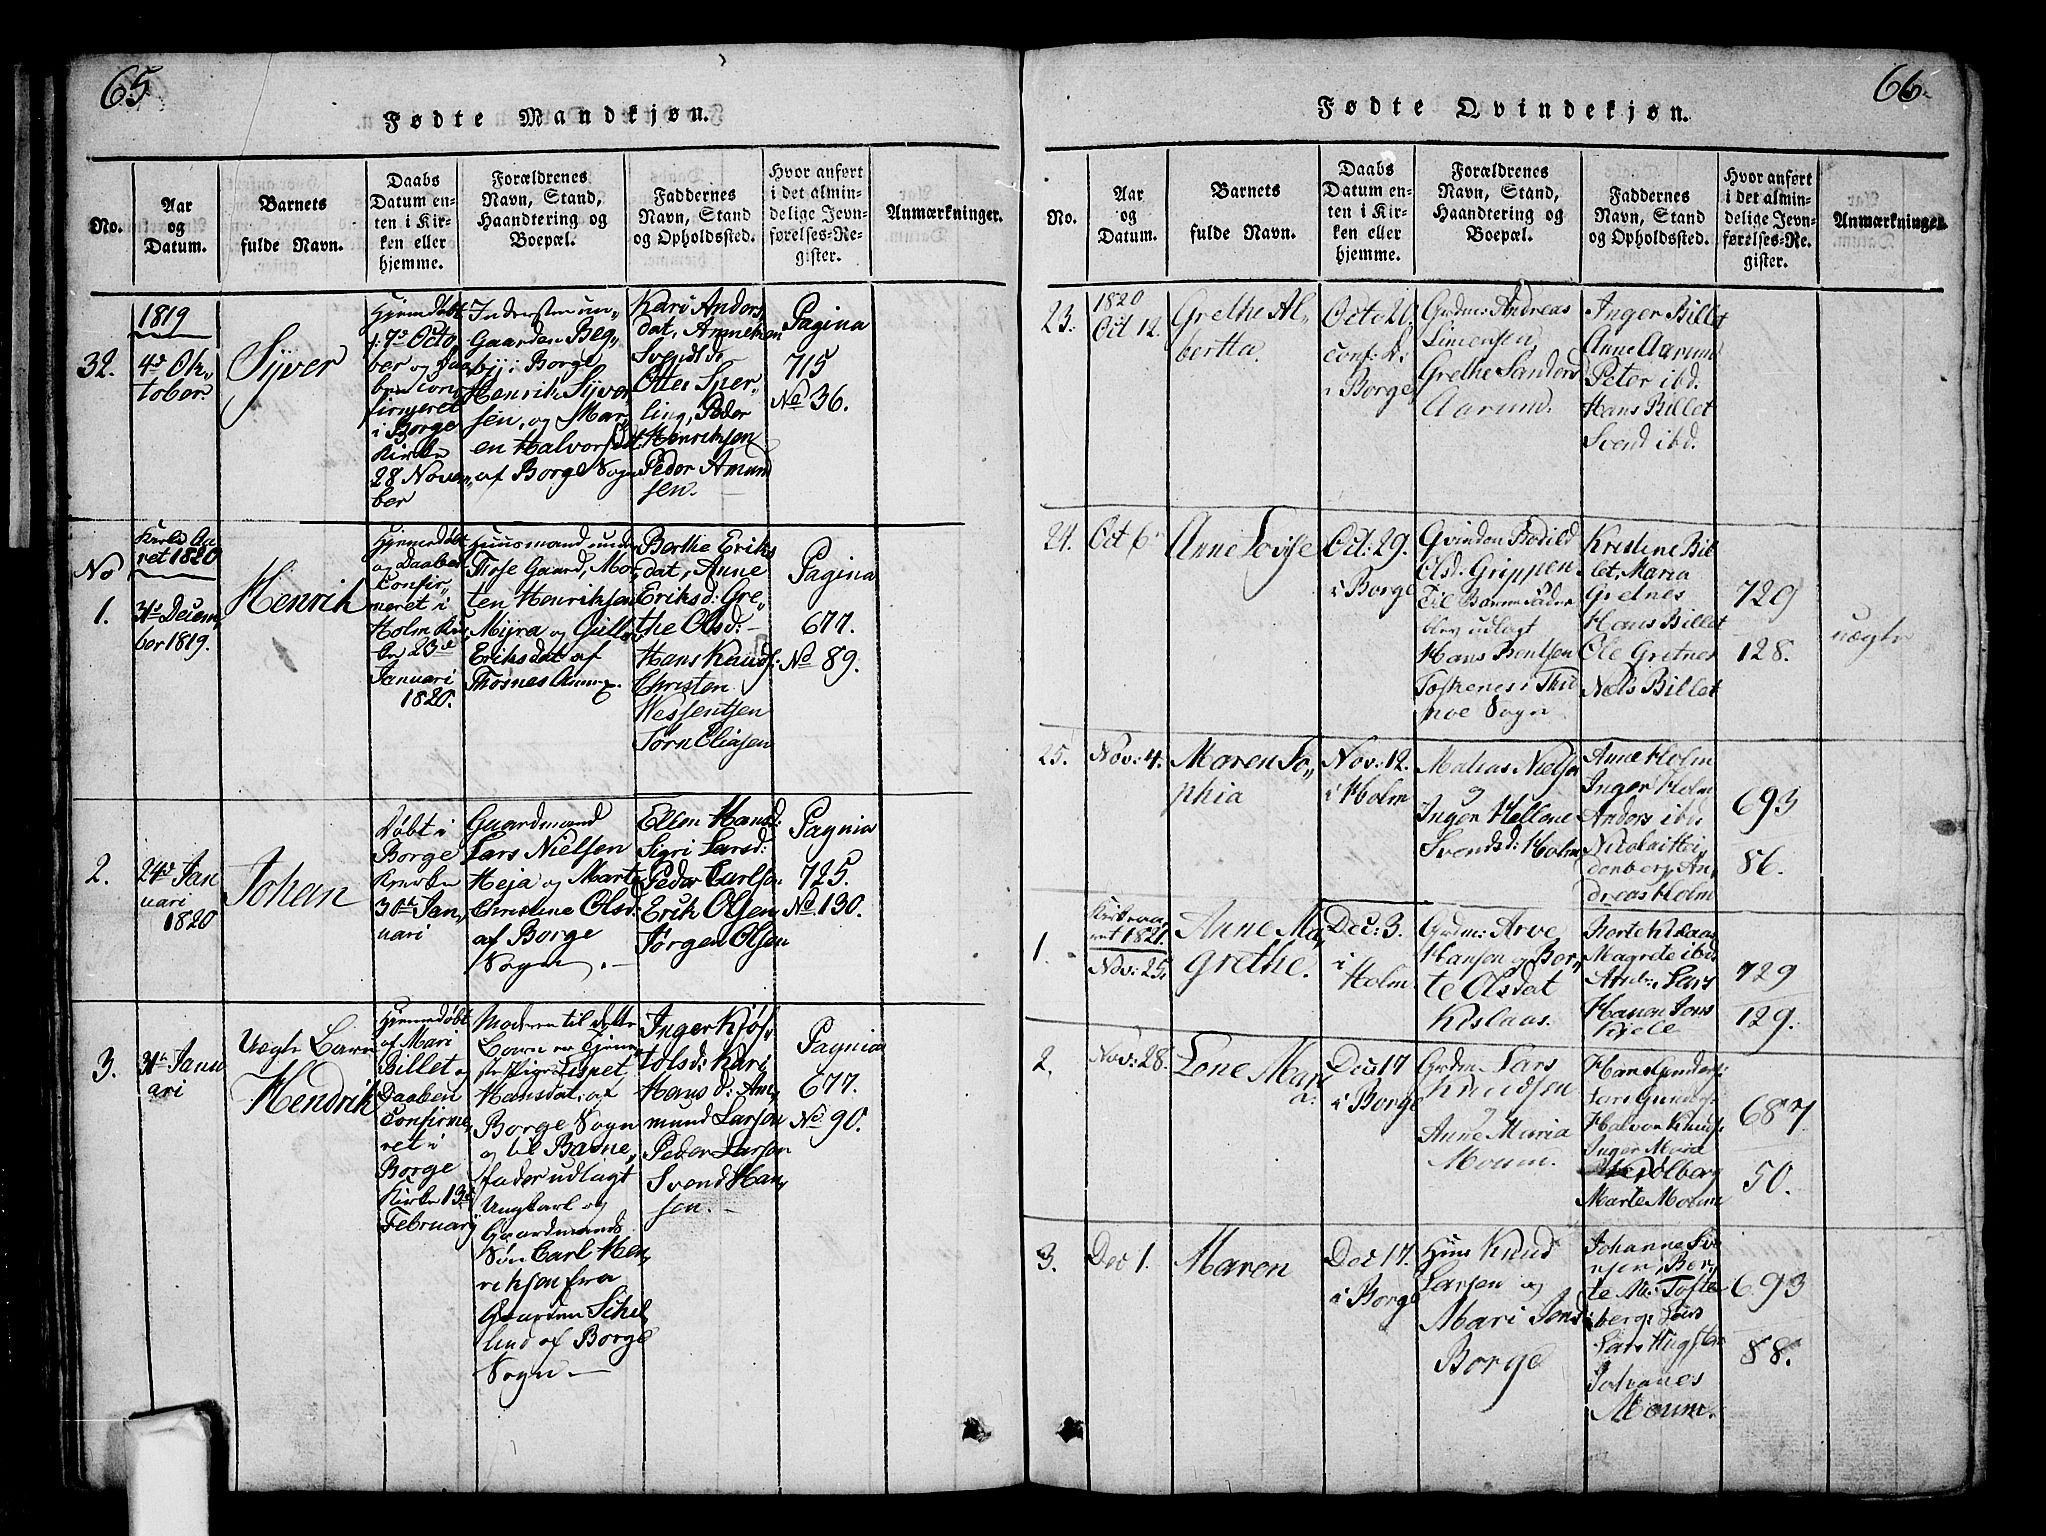 65
Fødte Mandkjøn.
No.
Aar
og
Datum.
Barnets
fulde Navn.
Daabs
Datum en-
ten i Kir-
ken eller
hjemme.
Forældrenes
Navn, Stand,
Haandtering og
Boepæl.
Faddernes
Navn, Stand
og Opholdssted.
Hvor anført
i det almin-
delige Jevn-
førelses-Re-
gister.
Anmærkninger.
32.
1819
4de Ok„
tober
Syver
Hjemdøbt
d. 7de Octo
ber og Daa
ben con„
firmeret
i Borge
Kirke
28 Novem„
ber
Inderster un„
Gaarden Beg„
by i Borge
Henrik Syver
sen, og Mar„
en Halvorsdt:
af Borge Sogn
Kari Anders
dat, Anne
Svendsd:
Otter Sper„
ling, Peder
Henriksen
Peder Amund
sen.
Pagina
715
No 36.
No
1.
Kirke Aa
ret 1820
31te Decem„
ber 1819.
Henrik
Hjemmedøbt
og Daaben
Confir„
meret i
Holm Kir
ke 23de
Januari
1820.
Huusmand under
Those Gaard, Mor„
ten Henriksen
Myra og Gull
Eriksdat af
Thosnes
Berthe Eriks
dat, Anne
Eriksd: Gre„
the Olsd:
Hans Knuds:
Christen
Torn Eliasen
Pagina
677.
No 89.
2.
24de Jan
uari
1820
Johan
Døbt i
Borge
Kirke
30te Jan„
uari
Gaardmand
Lars Nielsen
Heja og Marte
Christine Olsd:
af Borge
Sogn. —
Ellen Hansd:
Sigri Larsd:
Peder Carlsen
Erik Olsen
Jørgen Olsen
Pagnia
725.
No 130.
3.
31te Janu
ari
Uægte Barn
Hendrik
Hjemmedøbt
af Mari
Billet og
Daaben
Confirme„
ret i
Borge
Kirke 13de
February
Moderen til dette
Barn er Tjene„
ste Pige Lispet
Hansdat: af
Borge Sogn
og til Barne„
fader udlagt
Ungkarl og
Gaardmands
Søn Carl Hen„
riksen fra
Gaarden Sikel„
lund af Borge
Sogn. —
Inger Kjøl„
tolsd: Kari
Hans d: Am„
mund Larsen
Peder Larsen
Svend Han„
sen. —
Pagnia
677.
No 90.
66.
Fødte Qvindekjøn.
No.
Aar
og
Datum.
Barnets
fulde Navn.
Daabs
Datum en-
ten i Kir-
ken eller
hjemme.
Forældrenes
Navn, Stand,
Haandtering og
Boepæl.
Faddernes
Navn, Stand
og Opholdssted.
Hvor anført
i det almin-
delige Jevn-
førelses-Re-
gister.
Anmærkninger.
23.
1820
Oct 12.
Grethe Al„
bertta,
Octo 20.
conf: D:
i Borge
Grdm: Andreas
Simensen
Grethe Sanders
Aarum.
Inger Billet
Anne Aarum
Peter ibd.
Hans Billet
Svend ibd.
24.
Oct 6
Anne Lovise
Oct: 29.
i Borge
Qvinden Bodild
Olsd: Grippen
Til Barnefader
blev udlagt
Hans Bentsen
Toskenes i Thu
noe Sogn
Kristine Bil
let, Maria
Gretnes
Hans Billet
Ole Gretnes
Niels Billet
729
128.
uægte
25.
Nov: 4.
Maren So„
phia
Nov: 12.
i Holm
Matias Nielsen
og
Inger Hellene
Svendsd: Holm
Anne Holm
Inger Holm
Anders ibd.
Nicolai Hei„
denberg, An„
dreas Holm
693
86.
1.
Kirkeaa„
ret 1821.
Nov: 25.
Anne Ma„
grethe.
Dec: 3.
i
Holm
Grdm: Arve
Hansen og Ber„
te Olsdat
Kislaas.
Borte Kislaas
Magrete ibd.
Lars
Hanon Jons
Kjele
729
129.
2.
Nov: 28.
Lone Mari
a.
Dec 17
i Borge
Grdm Lars
Knudsen
og
Anne Maria
Moum.
Hans Gunders:
Lars Gunders:
Halvor Knuds:
Inger Marie
Olberg
Marte Molum
687
50.
3.
Dec 1.
Maren
Dec 17.
i Borge
Huus Knud
Larsen og
Mari Jensd:
Borge
Johanne Siv
ersen, Ber„
te M: Tofte
berg, Lars
Lars Hugsten
Johanes
Moum.
693
88.